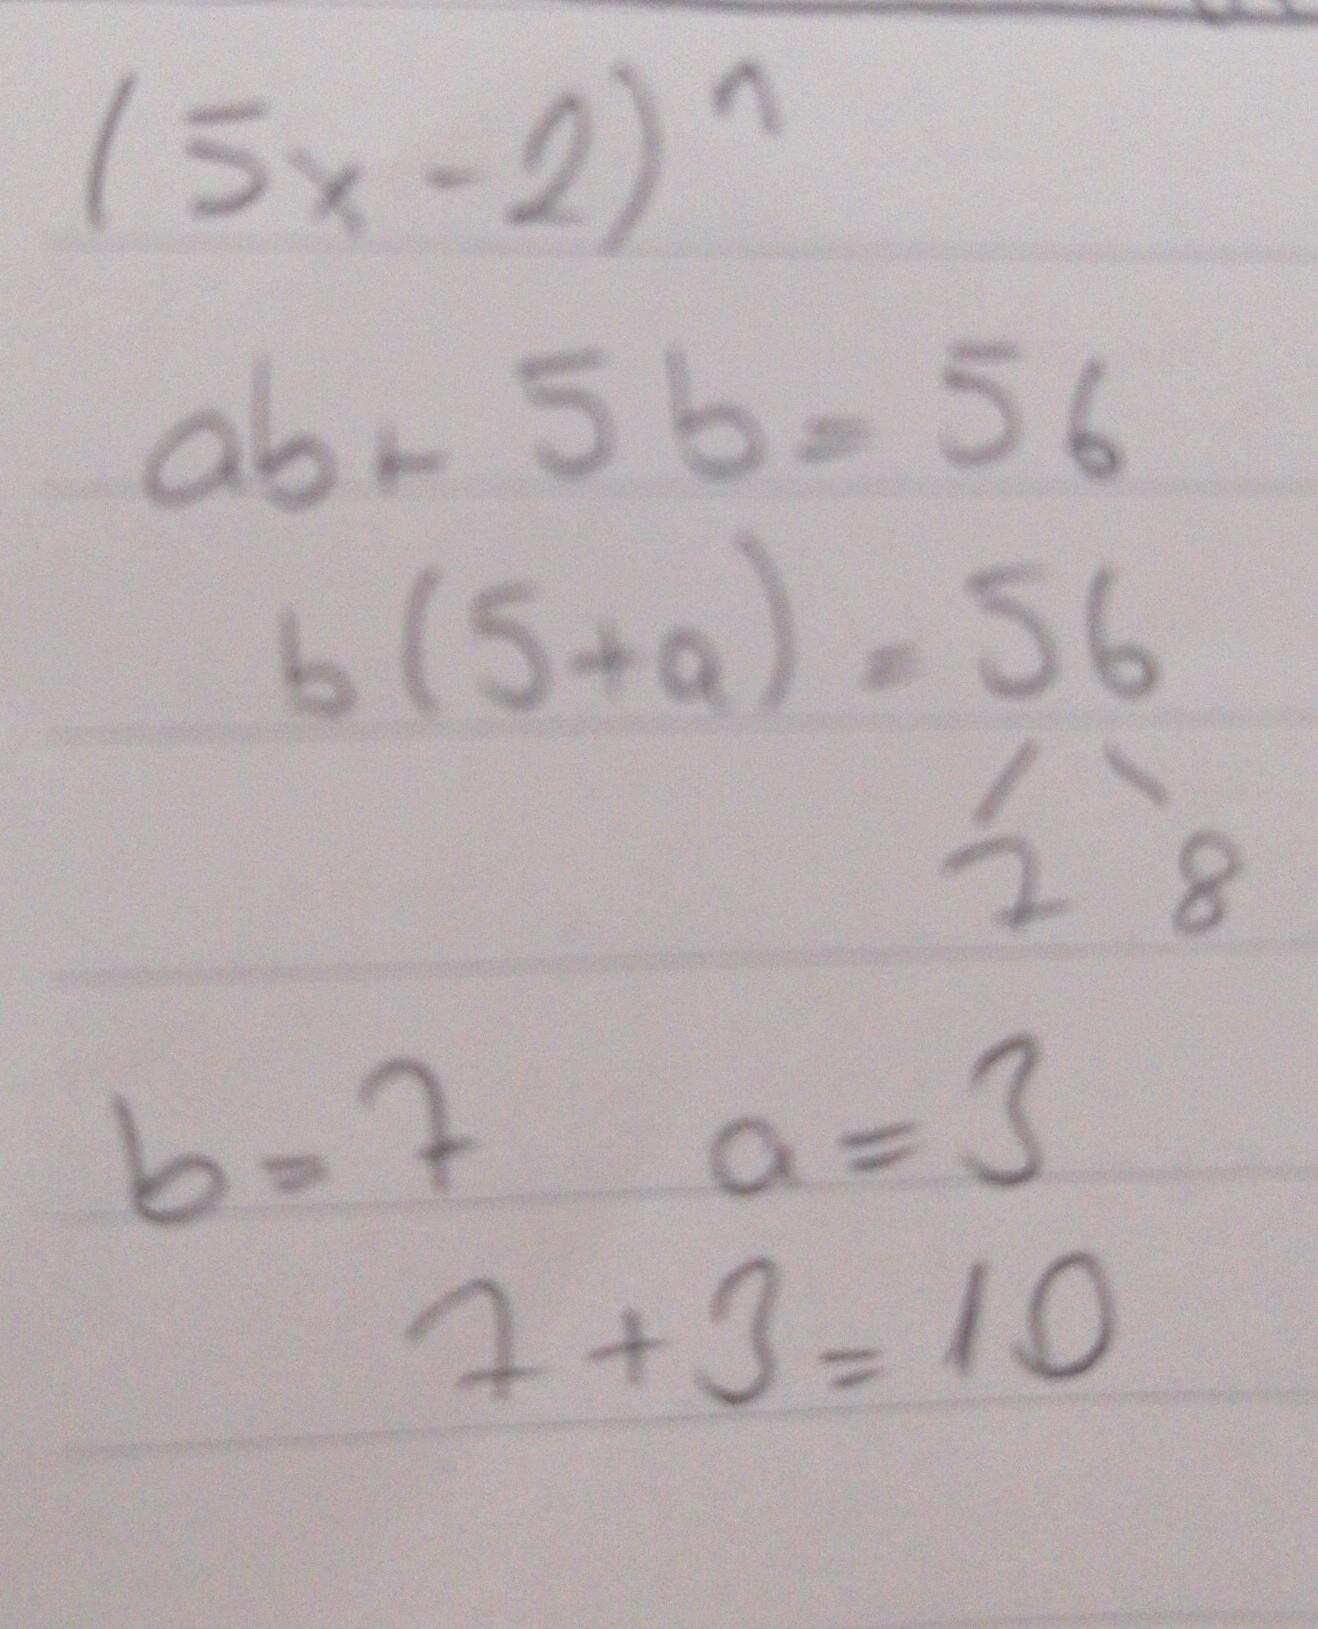 (5x-2)^n
ab + 5b = 56
b(5+a) = 56
7 8
b = 7 a = 3
7 + 3 = 10